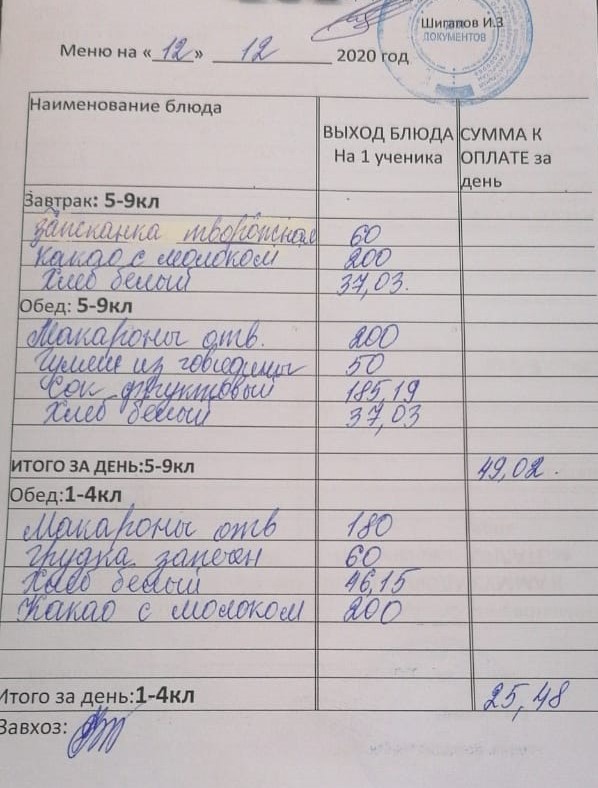 Шигапов И.З
ДОКУМЕНТОВ
Меню на «12» 12 2020 год
Наименование блюда
ВЫХОД БЛЮДА На 1 ученика
СУММА К ОПЛАТЕ за день
Завтрак: 5-9кл
Запеканка творожная 60
Какао с молоком 200
Хлеб белый 37,03.
Обед: 5-9кл
Макароны отв. 200
Гуляш из говядины 50
Сок фруктовый 185,19
Хлеб белый 37,03
ИТОГО ЗА ДЕНЬ:5-9кл 49,02.
Обед:1-4кл
Макароны отв 180
грудка запечен 60
Хлеб белый 46,15
Какао с молоком 200
Итого за день:1-4кл 25,48
Завхоз: